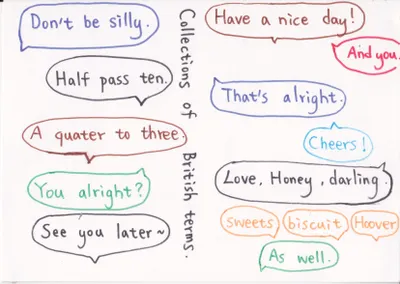 Don't be silly.
Half pass ten.
A quater to three.
You alright?
See you later~
Collections of British terms.
Have a nice day!
And you.
That's alright.
Cheers!
Love, Honey, darling.
Sweets
biscuit
Hoover
As well.